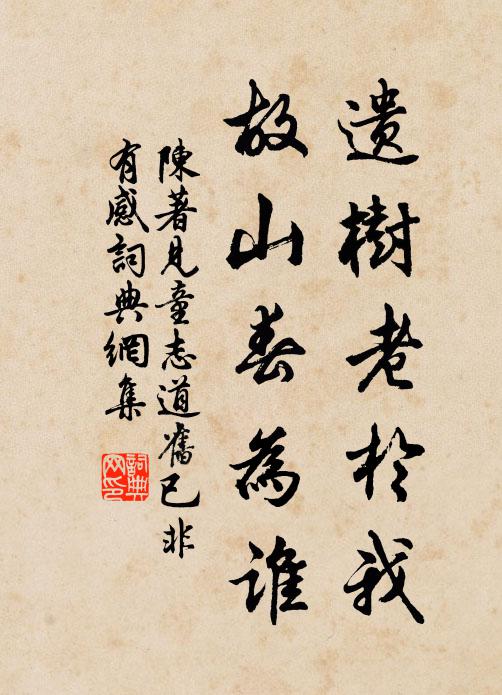 遗樹老於我
故山春為誰
陳著見童志道舊已非
有感詞典網集
詞典網印